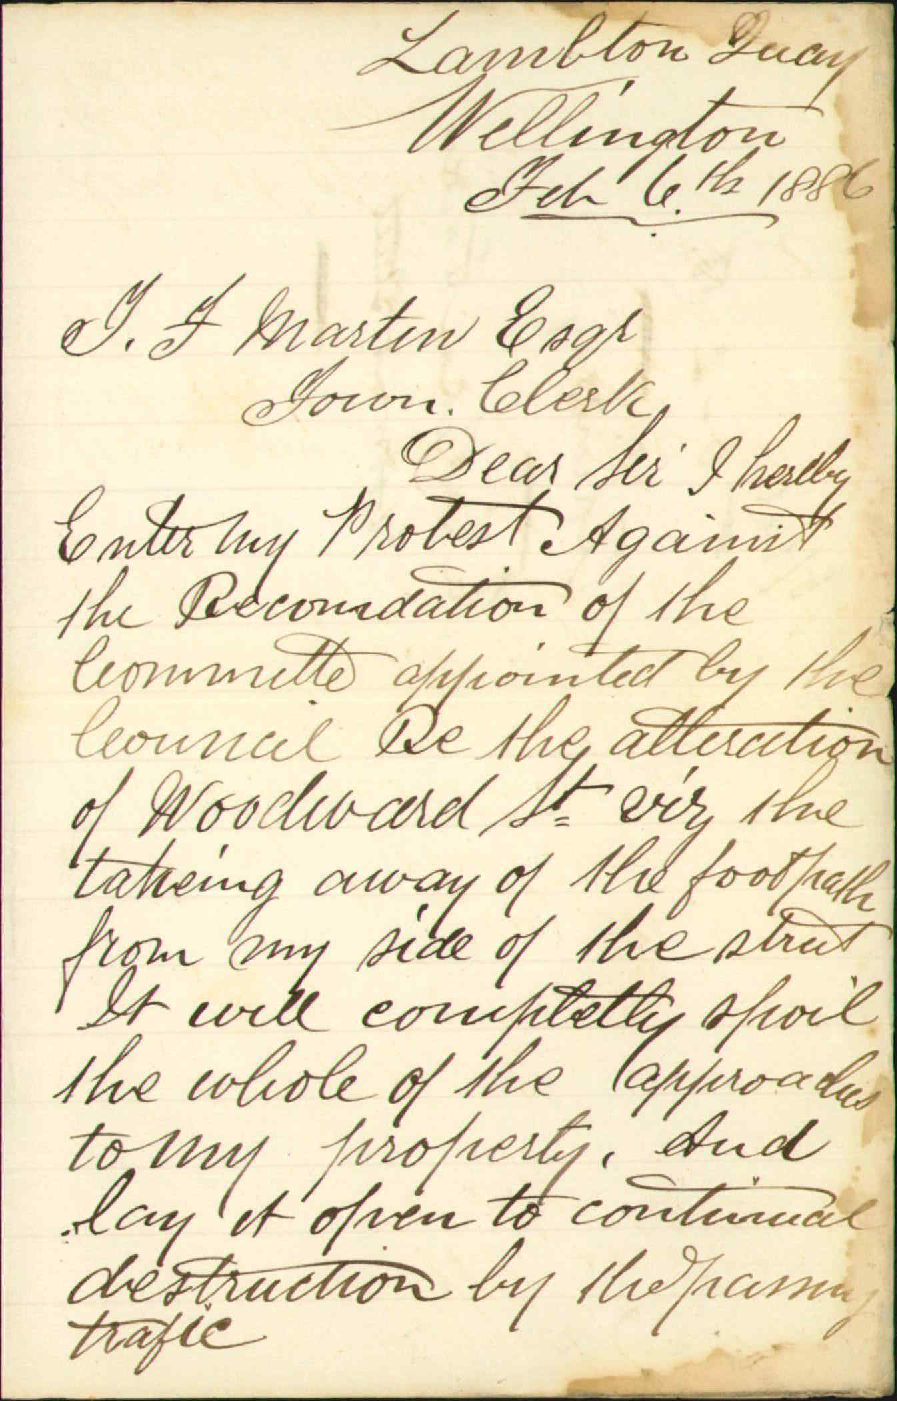 Lambton Quay
Wellington
Feb 6.th 1886
J. F Martin Esqr
Town. Clerk
Dear Sir I hereby
Enter my Protest Against
the Recomdation of the
Committe appointed by the
Council Re the alteration
of Woodward St viz the
takeing away of the footpath
from my side of the street
It will completly spoil
the whole of the approaches
to my property, And
lay it open to continual
destruction by the passing
trafic